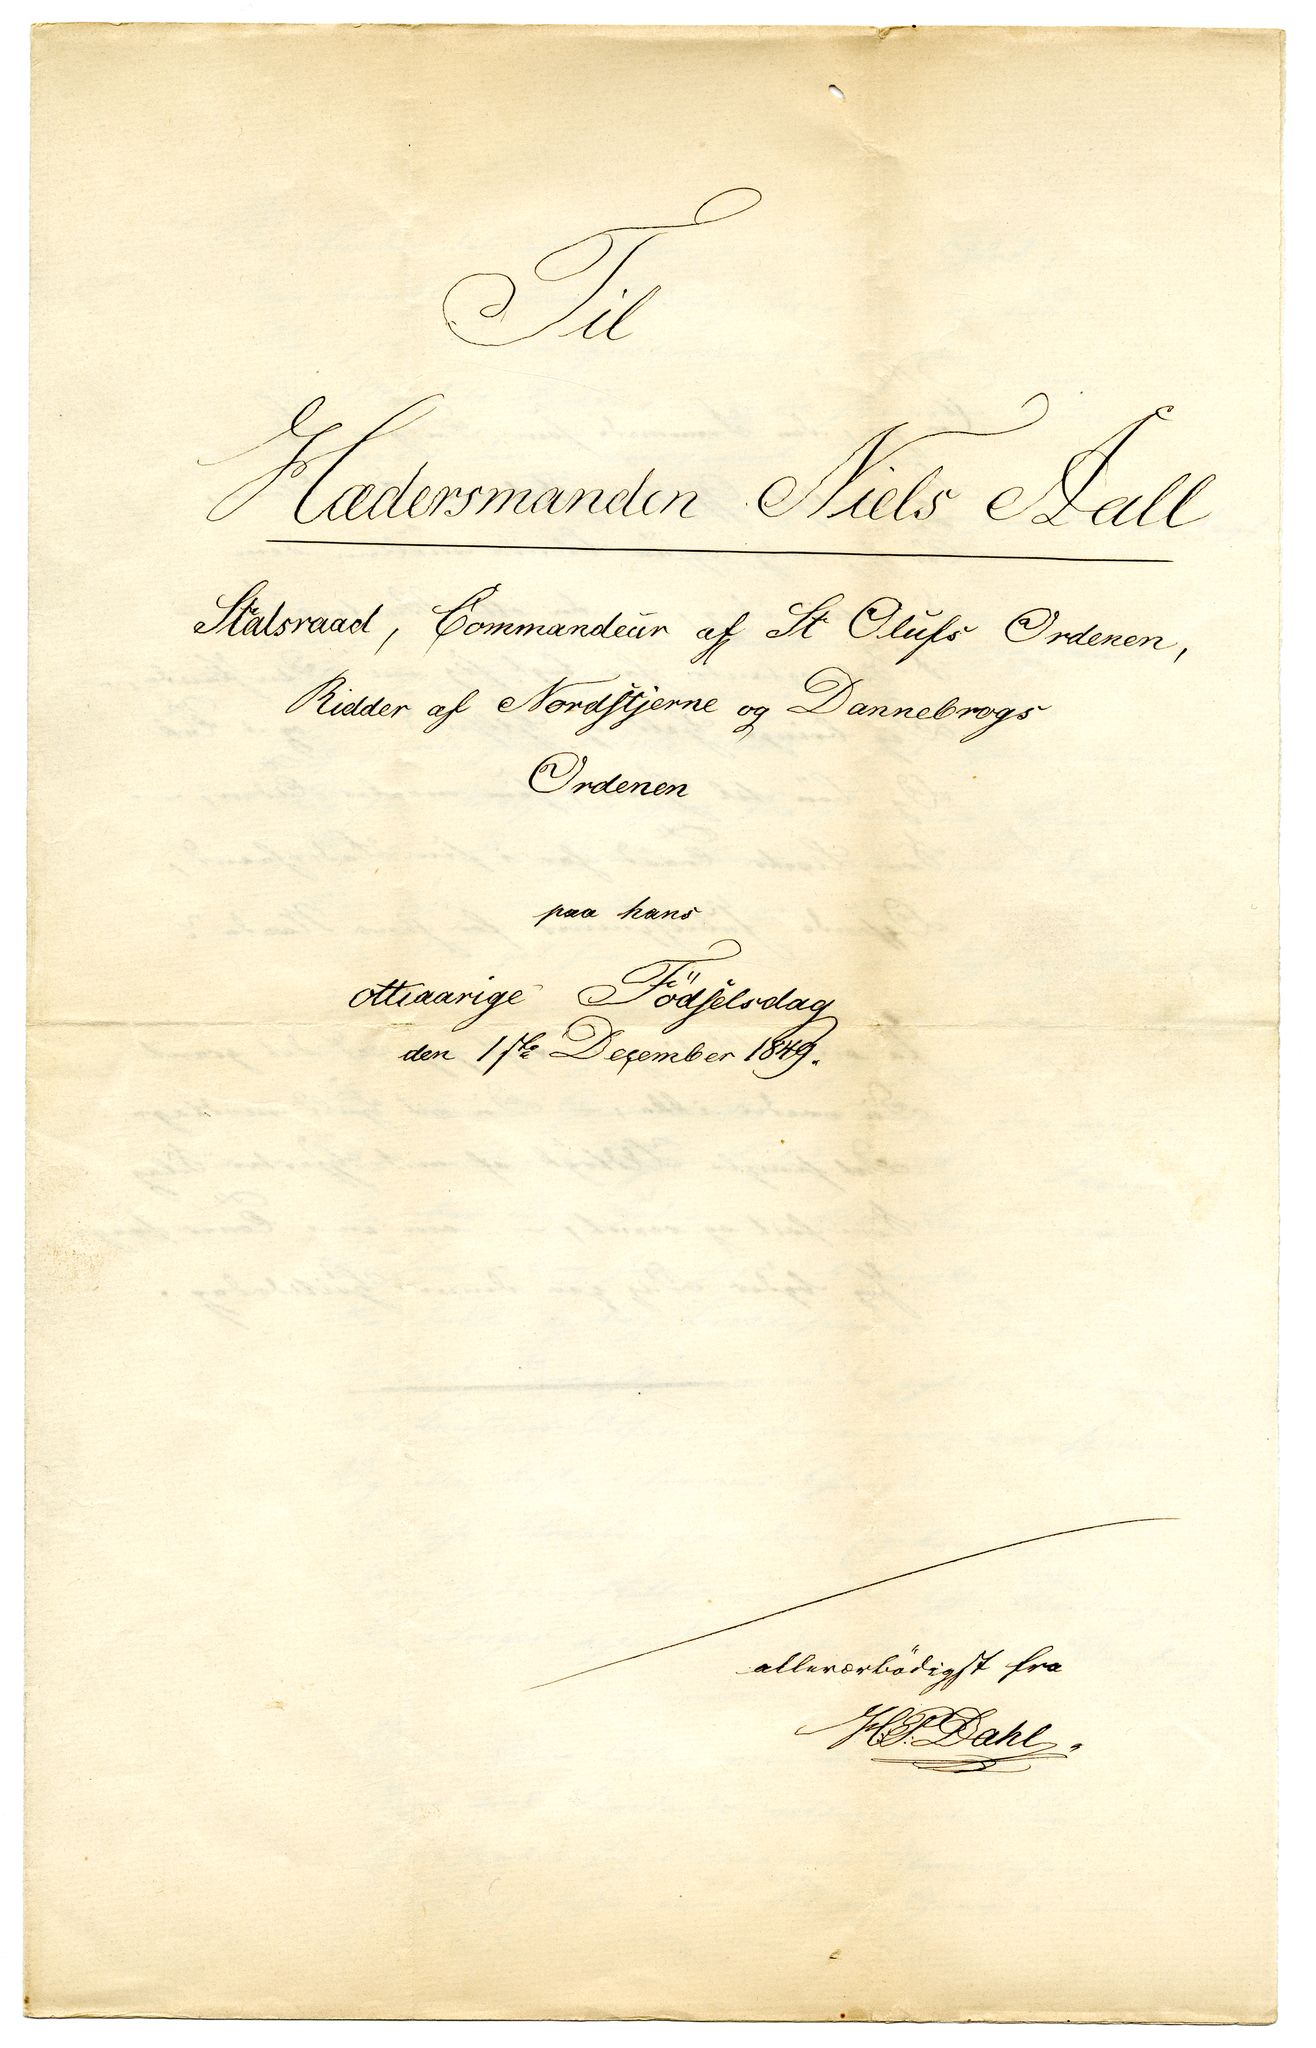 Til
Hædersmanden Niels Aall
Statsraad, Commandeur af St Olufs Ordenen,
Ridder af Nordstjerne og Dannebrogs
Ordenen
paa hans
ottiaarige Födselsdag
den 1ste December 1849.
allerærbödigst fra
H.P. Dahl.